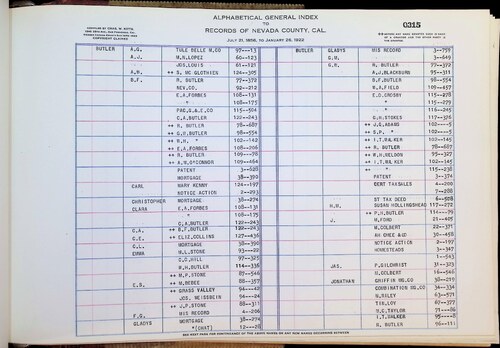 ALPHABETICAL GENERAL INDEX
TO
RECORDS OF NEVADA COUNTY, CAL.
JULY 21, 1856, to JANUARY 26, 1922
0315
BUTLER A.G. TULE BELLE M.CO 97—13
A.J. M.N.LOPEZ 60—123
JOS.LOUIS 61—121
A.W. ++ S. MC GLOTHEN 124—305
B.F. R. BUTLER 77—372
NEV.CO. 92—212
E.A.FORBES 108—131
" 108—175
PAC.G.&E.CO 115—504
C.A.BUTLER 122—243
++ R. BUTLER 78—687
++ G.H.BUTLER 98—554
++ E.A.FORBES 108—206
++ R. BUTLER 109—78
++ A.W.O'CONNOR 109—464
PATENT 3—628
MORTGAGE 38—390
CARL MARY KENNY 124—197
NOTICE ACTION 2—293
CHRISTOPHER MORTGAGE 38—274
CLARA E.A.FORBES 108—131
" 108—175
C.A.BUTLER 122—243
C.A. ++ B.F.BUTLER 122—243
C.E. ++ ELIZ.COLLINS 127—436
C.L. MORTGAGE 38—390
EMMA M.L.STONE 93—22
C.C.HILL 97—325
W.H.BUTLER 114—336
++ M.P.STONE 87—546
E.G. ++ M.BEBEE 88—357
++ GRASS VALLEY 94—42
JOS. WEISSBEIN 94—24
++ J.P.STONE 88—311
F.G. HIS RECORD 4—206
GLADYS MORTGAGE 38—274
" (CHAT) 12—28
BUTLER GLADYS HIS RECORD 3—758
G.M. 3—649
G.H. R. BUTLER 77—372
A.J.BLACKBURN 95—311
B.F.BUTLER 98—554
W.A.FIELD 109—457
E.D.CROSBY 115—278
" 115—279
" 115—245
G.H.STORES 117—526
++ J.G.ADAMS 102—5
++ S.P. " 102—5
++ I.T.WALKER 102—145
++ R. BUTLER 78—687
++ W.H.NELSON 95—327
++ I.T.WALKER 102—145
++ " 115—238
PATENT 3—374
DENT TAXSALES 4—208
7—208
ST TAX DEED 6—508
H.H. SUSAN HOLLINGSHEAD 117—272
++ P.H.BUTLER 114—79
J. M.FORD 21—425
M.COLBERT 22—371
AH GHEE &O 30—458
NOTICE ACTION 2—197
HOMESTEADS 3—347
1—543
JAS. P.GILCHRIST 31—323
M.COLBERT 16—546
JONATHAN GRIFFIN MG.CO 38—219
COMBINATION MG.CO 34—334
M.RILEY 63—571
TIM.LOY 67—377
D.C.TAYLOR 71—86
I.T.WALKER 95—8
R. BUTLER 76—111